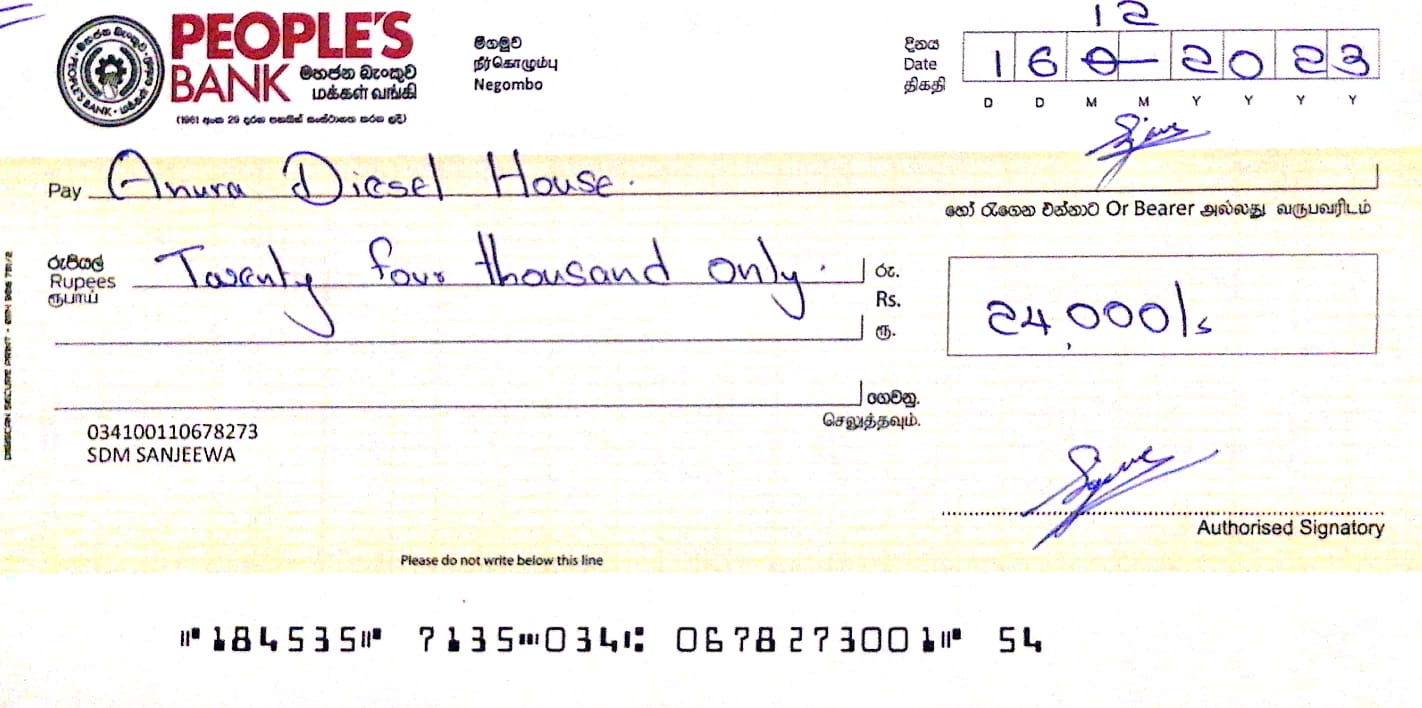 12
PEOPLE'S
BANK මහජන බැංකුව
மக்கள் வங்கி
(1961 අංක 29 දරන පනතින් සංස්ථාගත කරන ලදි)
මීගමුව
நீர்கொழும்பு
Negombo
දිනය
Date
திகதி
16 0 2023
D D M M Y Y Y Y
Pay Anura Diesel House.
හෝ රැගෙන එන්නාට Or Bearer அல்லது வருபவரிடம்
රුපියල්
Rupees
ரூபாய்
Twenty four thousand only.
රු.
Rs.
ரூ.
24,000/s
ගෙවනු.
செலுத்தவும்.
034100110678273
SDM SANJEEWA
Authorised Signatory
Please do not write below this line
⑈184535⑈ 7135⑉034⑆ 0678273001⑈ 54